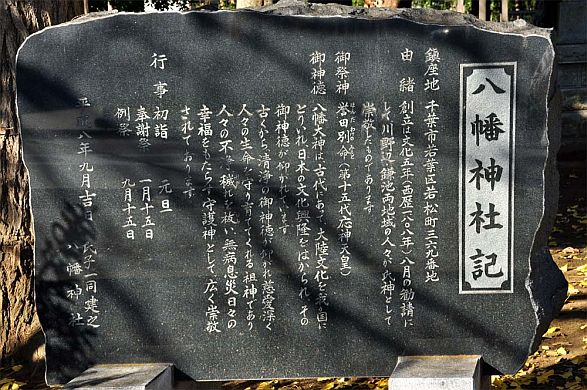 八幡神社記
鎮座地　千葉市若葉区若松町三六九番地
由緒　創立は文化五年(西歴一八〇八年)八月の勧請に
して川野辺鎌池両地域の人々が氏神として
崇敬したものであります
御祭神　誉田別命(第十五代応神天皇)
御神徳　八幡大神は、古代にあって、大陸文化を我が国に
とりいれ日本の文化興隆をはかられ、その
御神徳が仰がれています
古くから、清海の御神徳が仰がれ慈愛深く
人々の生命を守り育てくれる祖神であり
人々の不浄、穢れを祓い無病息災日々の
幸福をもたらす守護神として、広く崇敬
されております
行事　初詣　元旦
奉謝祭　一月十五日
例祭　九月十五日
平成八年九月吉日　氏子一同建之
八幡神社